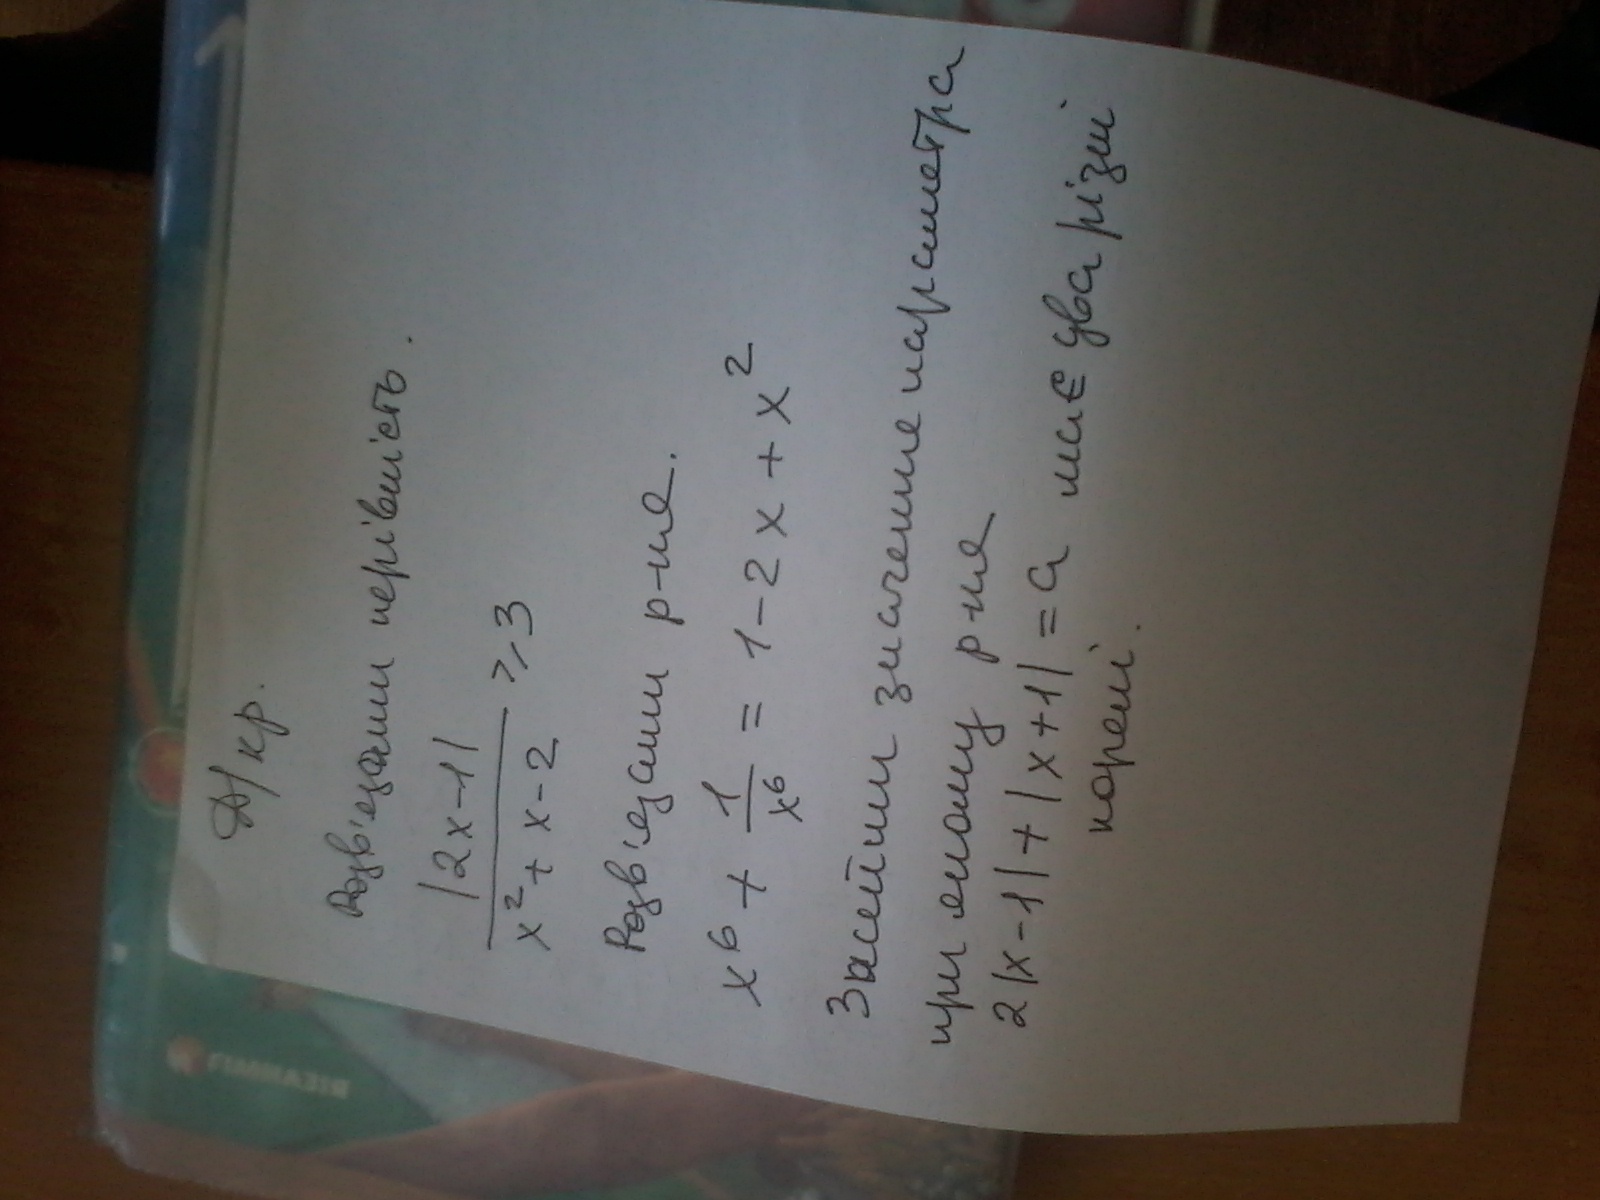 Д/кр.
Розв'язати нерівність.
|2x-1| / x²+x-2 ⩾ 3
Розв'язати р-ня.
x⁶ + 1/x⁶ = 1-2x+x²
Знайти значення параметра
при якому р-ня
2|x-1|+|x+1|=a має два різні
корені.
ГІМНАЗІЯ